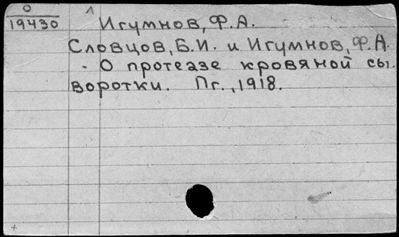 О
19430
Игумнов, Ф.А.
Словцов, Б.И. и Игумнов, Ф.А.
- О протеазе кровяной сы-
воротки. Пг., 1918.